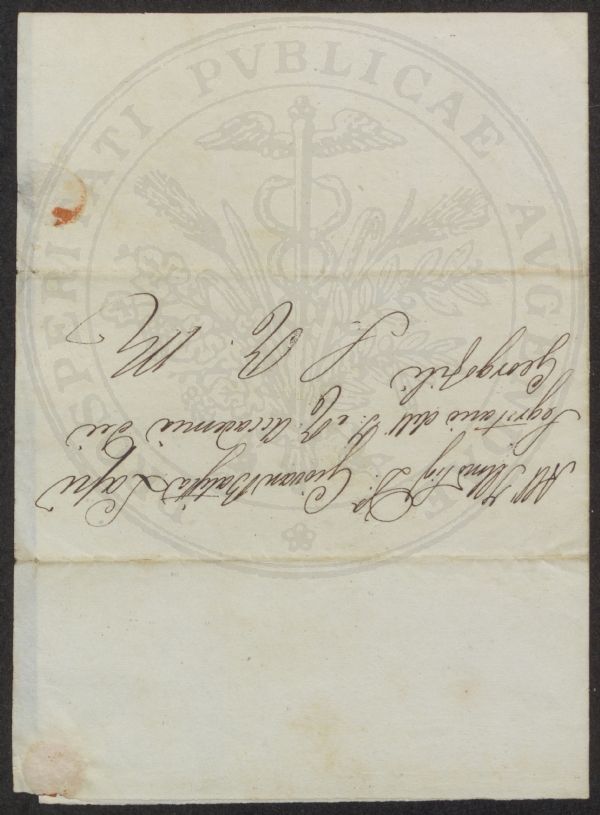 PROSPERITATI PVBLICAE AVGENDAE
All' Illmo Sig. Dr. Giovan Batista Lapi
Segretario dell' I: e R: Accademia dei
Georgofili
S. R. M